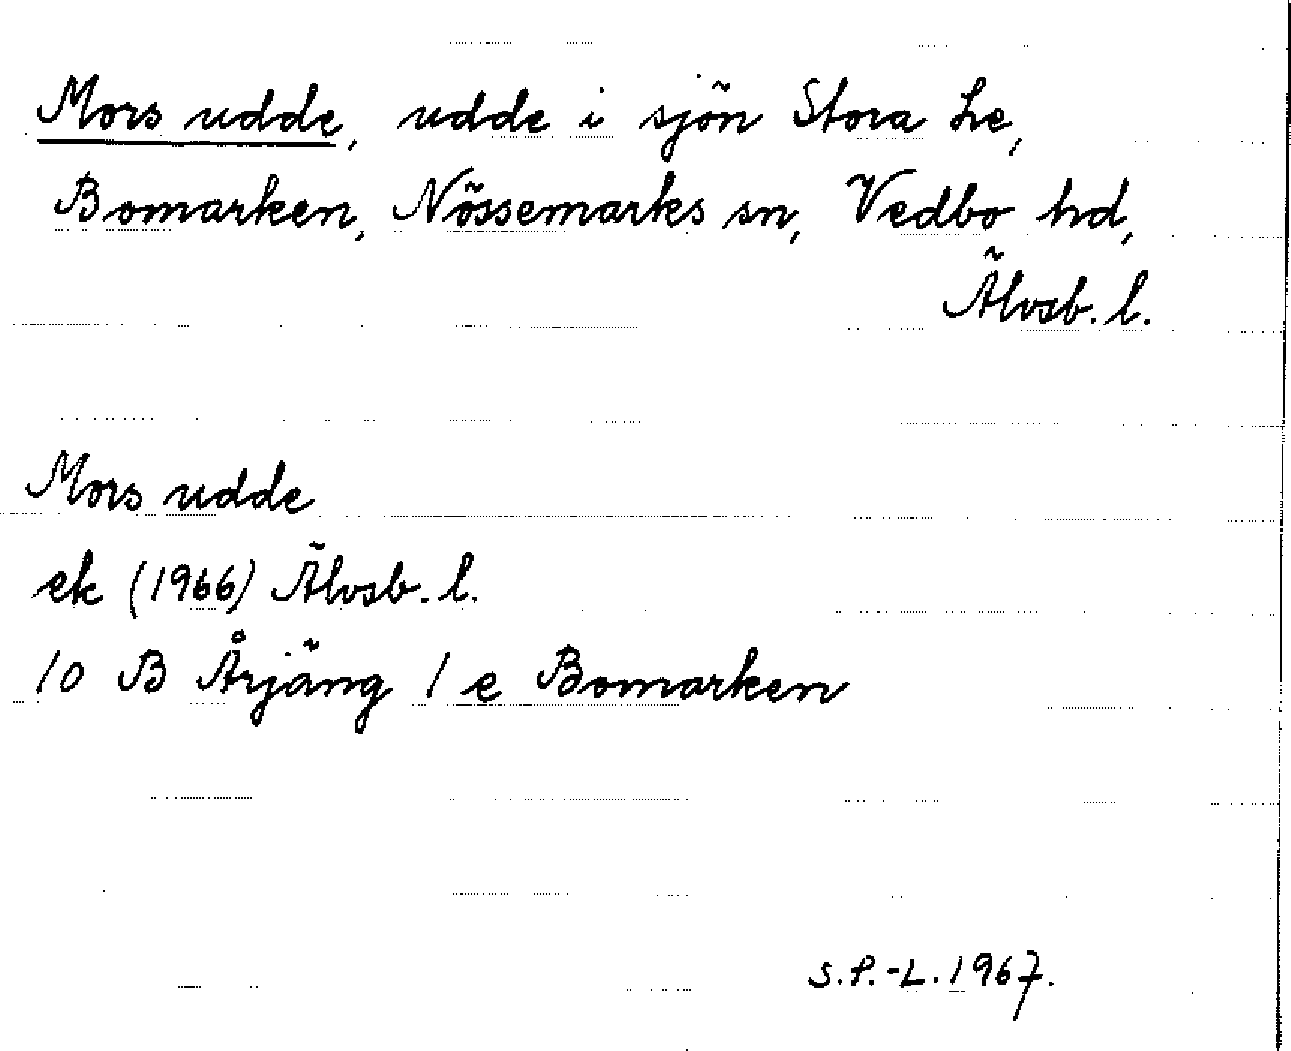 Mors udde, udde i sjön Stora Le,
Bomarken, Nössemarks sn, Vedbo hd,
Älvsb. l.
Mors udde
ek (1966) Älvsb. l.
10 B Årjäng 1 e Bomarken
S.P.-L. 1967.